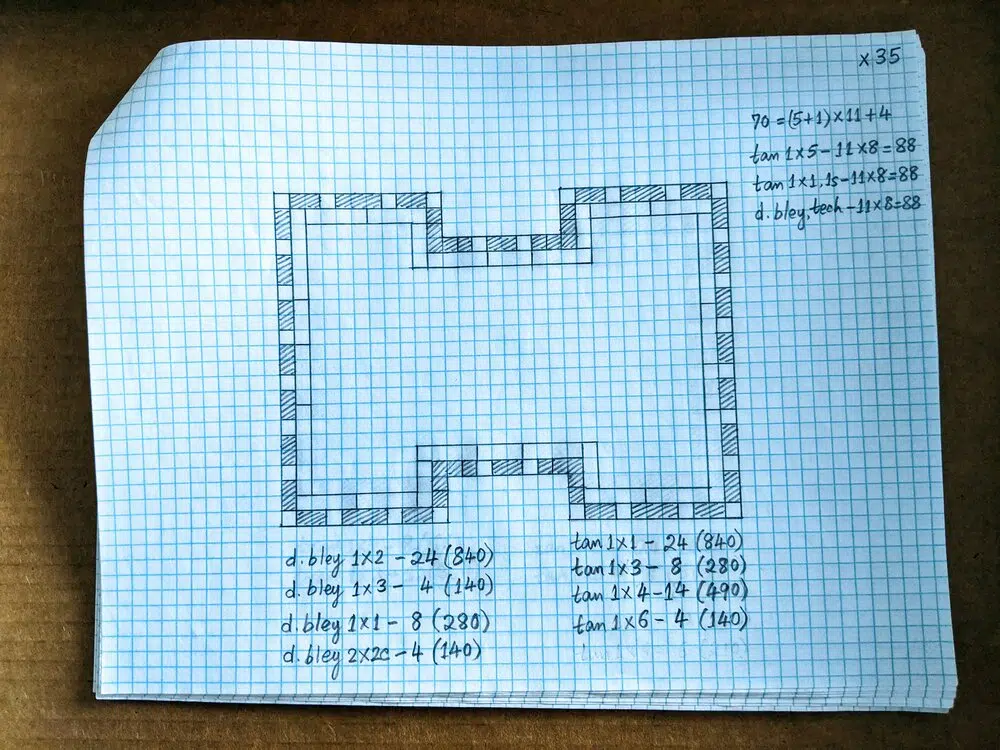 x35
70 = (5+1)×11+4
tan 1×5 - 11×8 = 88
tan 1×1, 1s - 11×8=88
d. bley, tech - 11×8=88
d. bley 1×2 - 24 (840)
d. bley 1×3 - 4 (140)
d. bley 1×1 - 8 (280)
d. bley 2×2c - 4 (140)
tan 1×1 - 24 (840)
tan 1×3 - 8 (280)
tan 1×4 - 14 (490)
tan 1×6 - 4 (140)